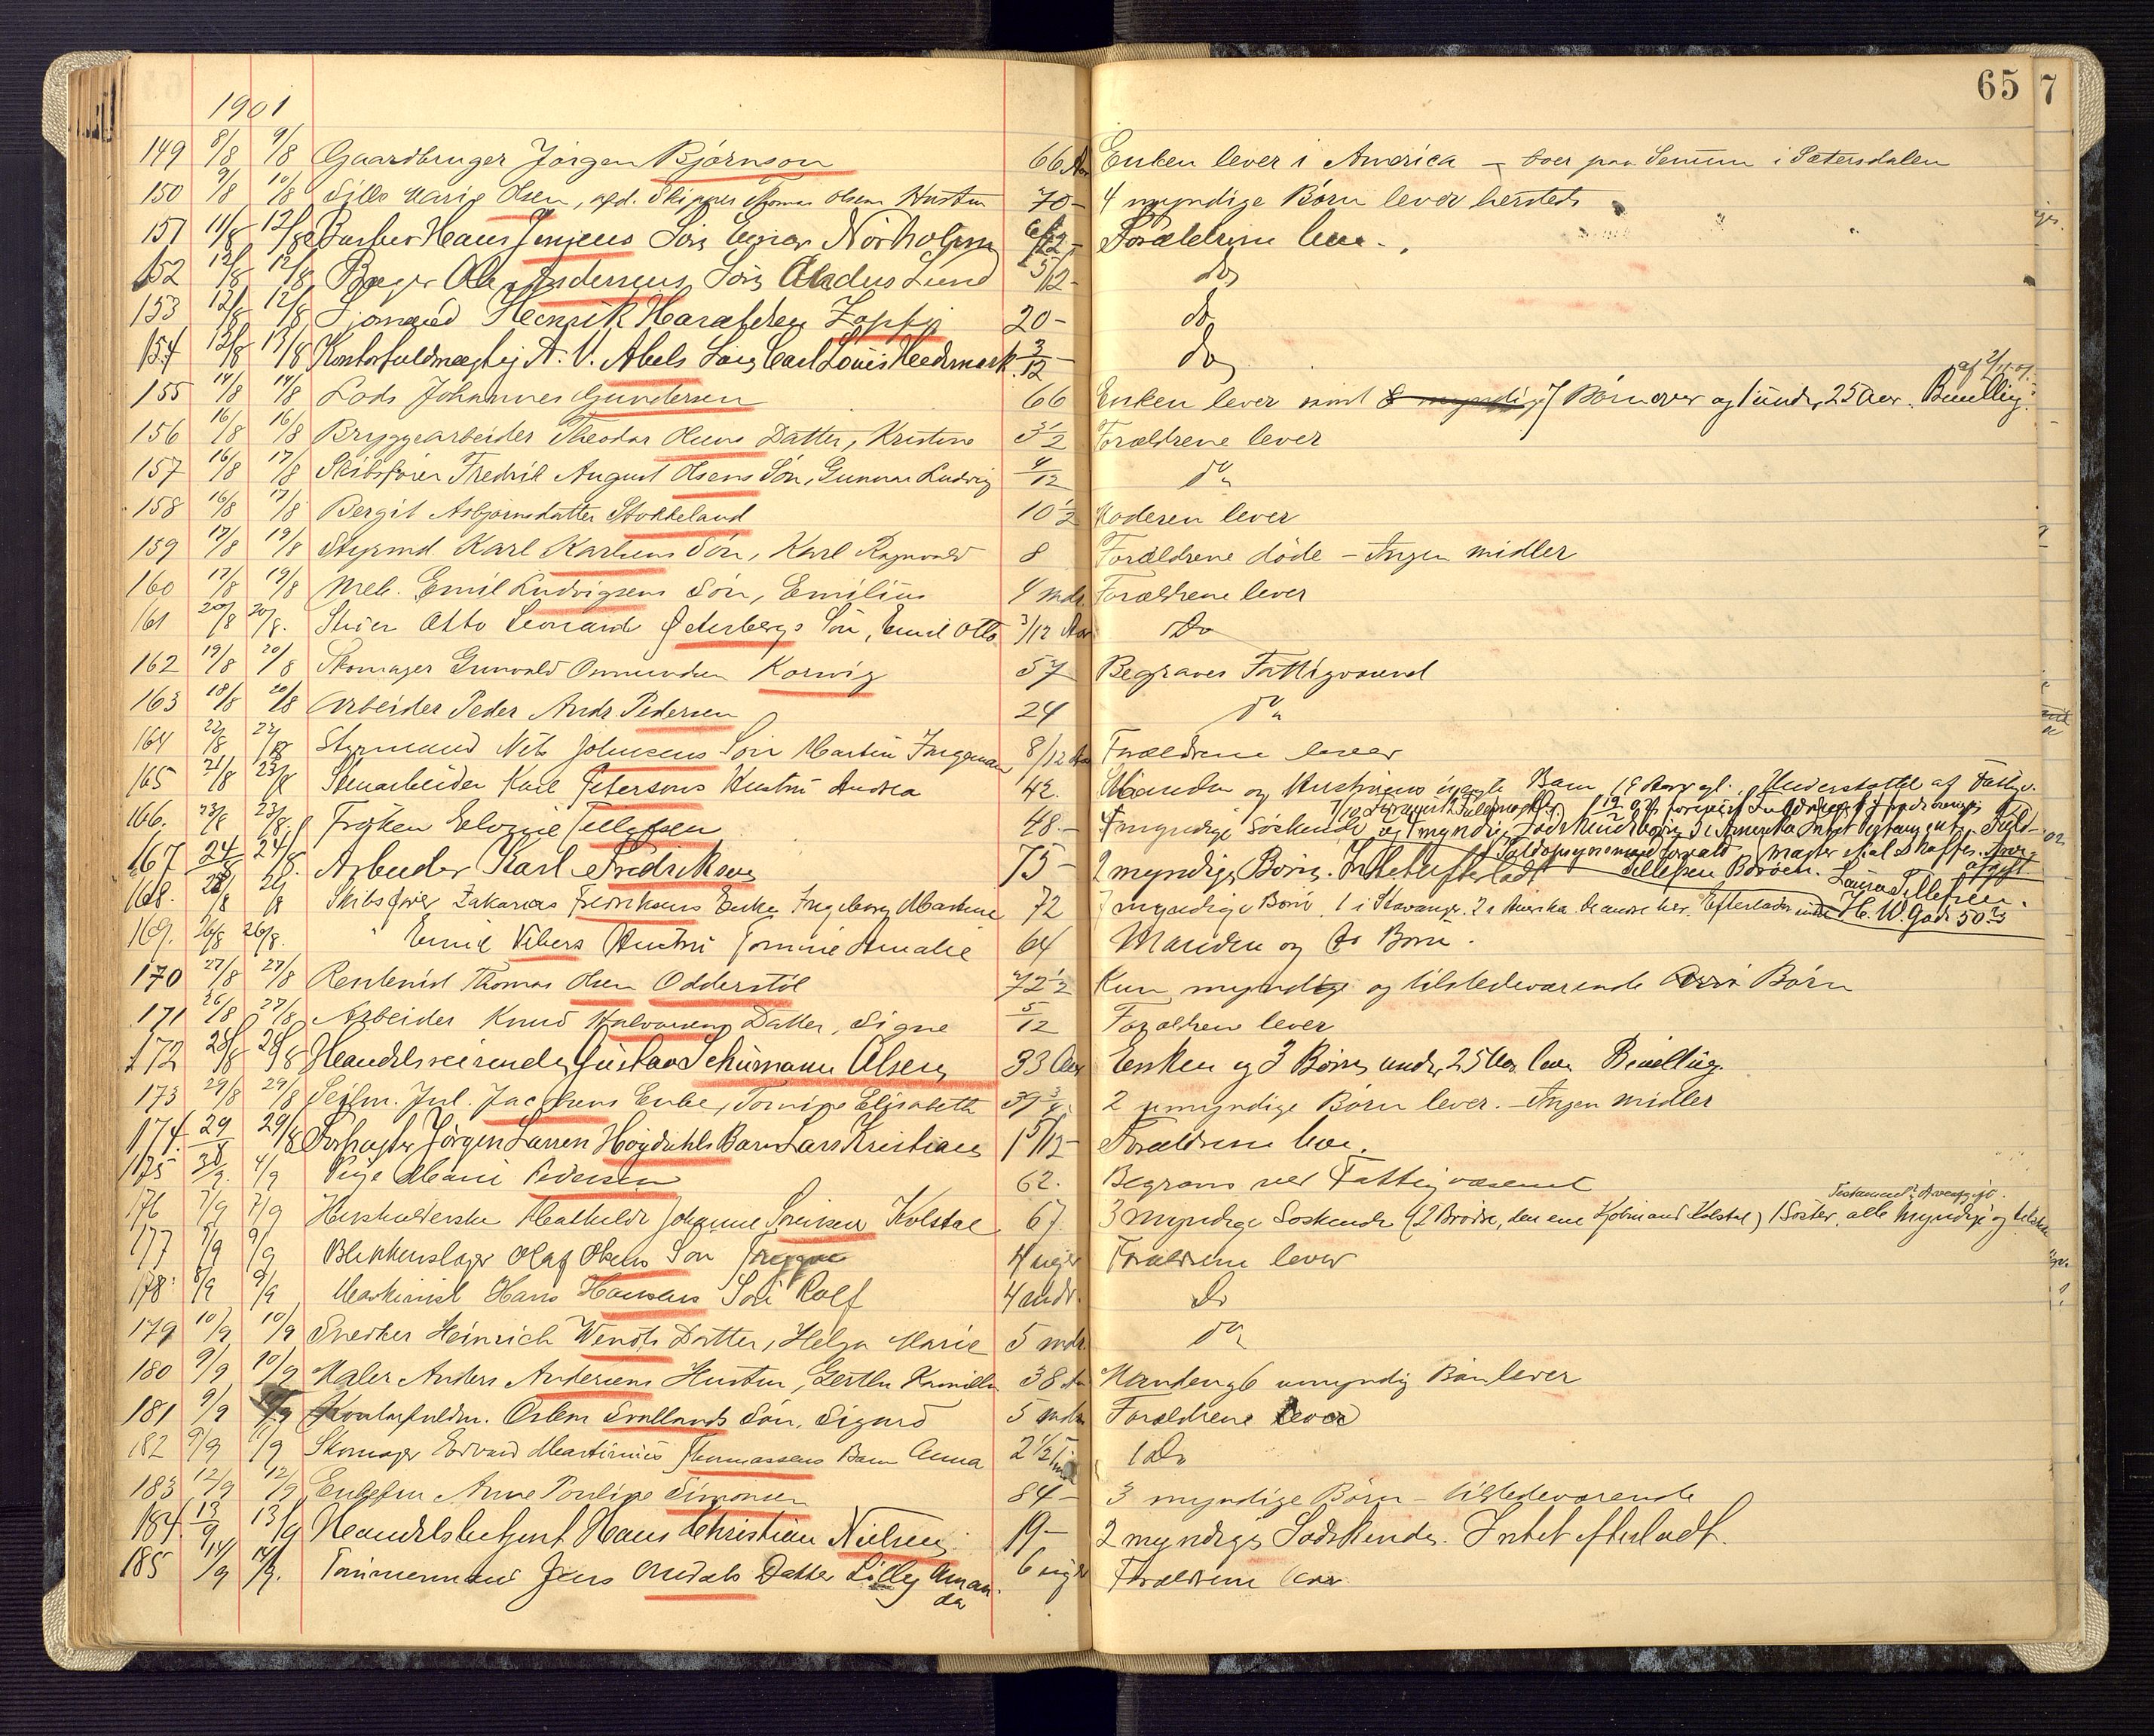 65 7
1901
149 8/8 9/8 Gaardbruger Jörgen Bjørnson 66 Aar Enken lever i America – boer paa Semum i Sætersdalen
150 9/8 10/8 Marie Olsen, afd. Skipper Thomas Olsens Hustru 70 – 4 myndige Børn lever hersteds
151 11/8 12/8 Hans Jensens Søn Einar Nörholm Forældrene lever.
152 12/8 12/8 Ole Andersens Søn Lund 5/12 – do
153 12/8 12/8 Sjømand Henrik Haraldsen Zapffe 20 – do
154 12/8 13/8 Kontorfuldmægtig A. V. Abels Søn Carl Louis Hedemark 3/12 – do
155 14/8 14/8 Lods Johannes Gundersen 66 Enken lever samt 8 myndige 7 Børn over og 1 under 25 Aar. Bevilling af 2/11.01.
156 16/8 16/8 Bryggearbeider Theodor Olsens Datter, Kristine 3 1/2 Forældrene lever
157 16/8 17/8 Skibsfører Fredrik August Olsens Søn, Gunnar Ludvig 4/12 do
158 16/8 17/8 Bergit Asbjørnsdatter Stokkeland 10 1/2 Moderen lever
159 17/8 19/8 Styrmd Karl Karlsens Søn, Karl Ragnvald 8 Forældrene døde – Ingen midler
160 17/8 19/8 Mek. Emil Ludvigsens Søn, Emilius 4 mdr. Forældrene lever
161 20/8 20/8. Otto Leonard Osterbergs Søn, Emil Otto 3/12 Aar Do
162 19/8 20/8 Skomager Gunvald Osmundsen Korsvig 57 Begraves Fattigvæsend
163 18/8 20/8 Arbeider Peder Andr. Pedersen 24 do
164 22/8 22/8 Styrmand Nils Johnsens Søn Martin Ingeman 8/12 Aar Forældrene lever
165 21/8 23/8 Stenarbeider Karl Petersons Hustru Andrea 42. Manden og Hustruens uægte Barn 19 Aar gl. Understøttet af Fattigv.
166. 23/8 23/8. Frøken Elovise Tellefsen 48. – 4 myndige Söskende og 4 myndige Södskendebørn i Amerika Intet Testament. Fuld-
Toldopsynsmand mægter skal skaffes. Arv-
167 24/8 24/8. Arbeider Karl Fredriksen 75 – 2 myndige Børn. Intet efterladt Tellefsen Barøen. Laura Tellefsen. afgift
168. 22/8 24/8 Skibsfører Zakarias Fredriksens Enke, Ingeborg Marthine 72 7 myndige Børn, 1 i Stavanger. 2 i Amerika. De andre her. Efterlader intet H. W. Gade 50.
169. 26/8 26/8. " Emil Vibers Hustru Tomine Amalie 64 Manden og Børn.
170 27/8 27/8 Rentenist Thomas Olsen Odderstöl 72 1/2 Kun myndige og tilstedeværende Børn
171 26/8 27/8 Arbeider Knud Halvorsens Datter, Signe 5/12 Forældrene lever
172 28/8 28/8 Handelsreisende Gustav Schümann Olsen 33 Aar Enken og 3 Børn under 25 Aar lever Bevilling.
173 29/8 29/8 Seilm. Jul. Jacobsens Enke, Tomine Elisabeth 2 umyndige Børn lever. – Ingen midler
174. 29/8 29/8 Forpagter Jörgen Larsen Høgdahls Barn Lars Kristian 1 5/12 – Forældrene lever.
175 4/9 Pige Marie Pedersen 62. Begraves ved Fattigvæsenet
176 7/9 7/9 Husholderske Mathilde Johanne Sørensen Kolstad 67. 3 myndige Søskende (2 Brødre, den ene Kjøbmand Kolstad) 1 Søster, alle myndige og tilstede Testament? Arveafgift.
177 9/9 Blikkenslager Olaf Olsens Søn 4 uger Forældrene lever
178 8/9 9/9 Maskinist Hans Hansens Søn Rolf 4 mdr. Do
179 10/9 10/9 Snedker Heinrich Wendts Datter, Helga Marie 5 mdr. do
180 9/9 10/9 Maler Anders Andersens Hustru, Kamilla 38 Aar Manden og 6 umyndig Børn lever
181 9/9 Kontorfuldm. Svallands Søn, Sigurd 5 mdr Forældrene lever
182 9/9 11/9 Skomager Edvard Martinius Thomassens Barn Anna 2 1/2 Do
183 12/9 12/9 Enkefru Anne Pouline Simonsen 84 – 3 myndige Børn – tilstedeværende
184. 13/9 13/9 Handelsbetjent Hans Christian Nielsen. 19 – 2 myndige Södskende. Intet efterladt.
185 14/9 14/9. Tømmermand Jens Omdals Datter Lilly Aman- 6 uger Forældrene lever.
da